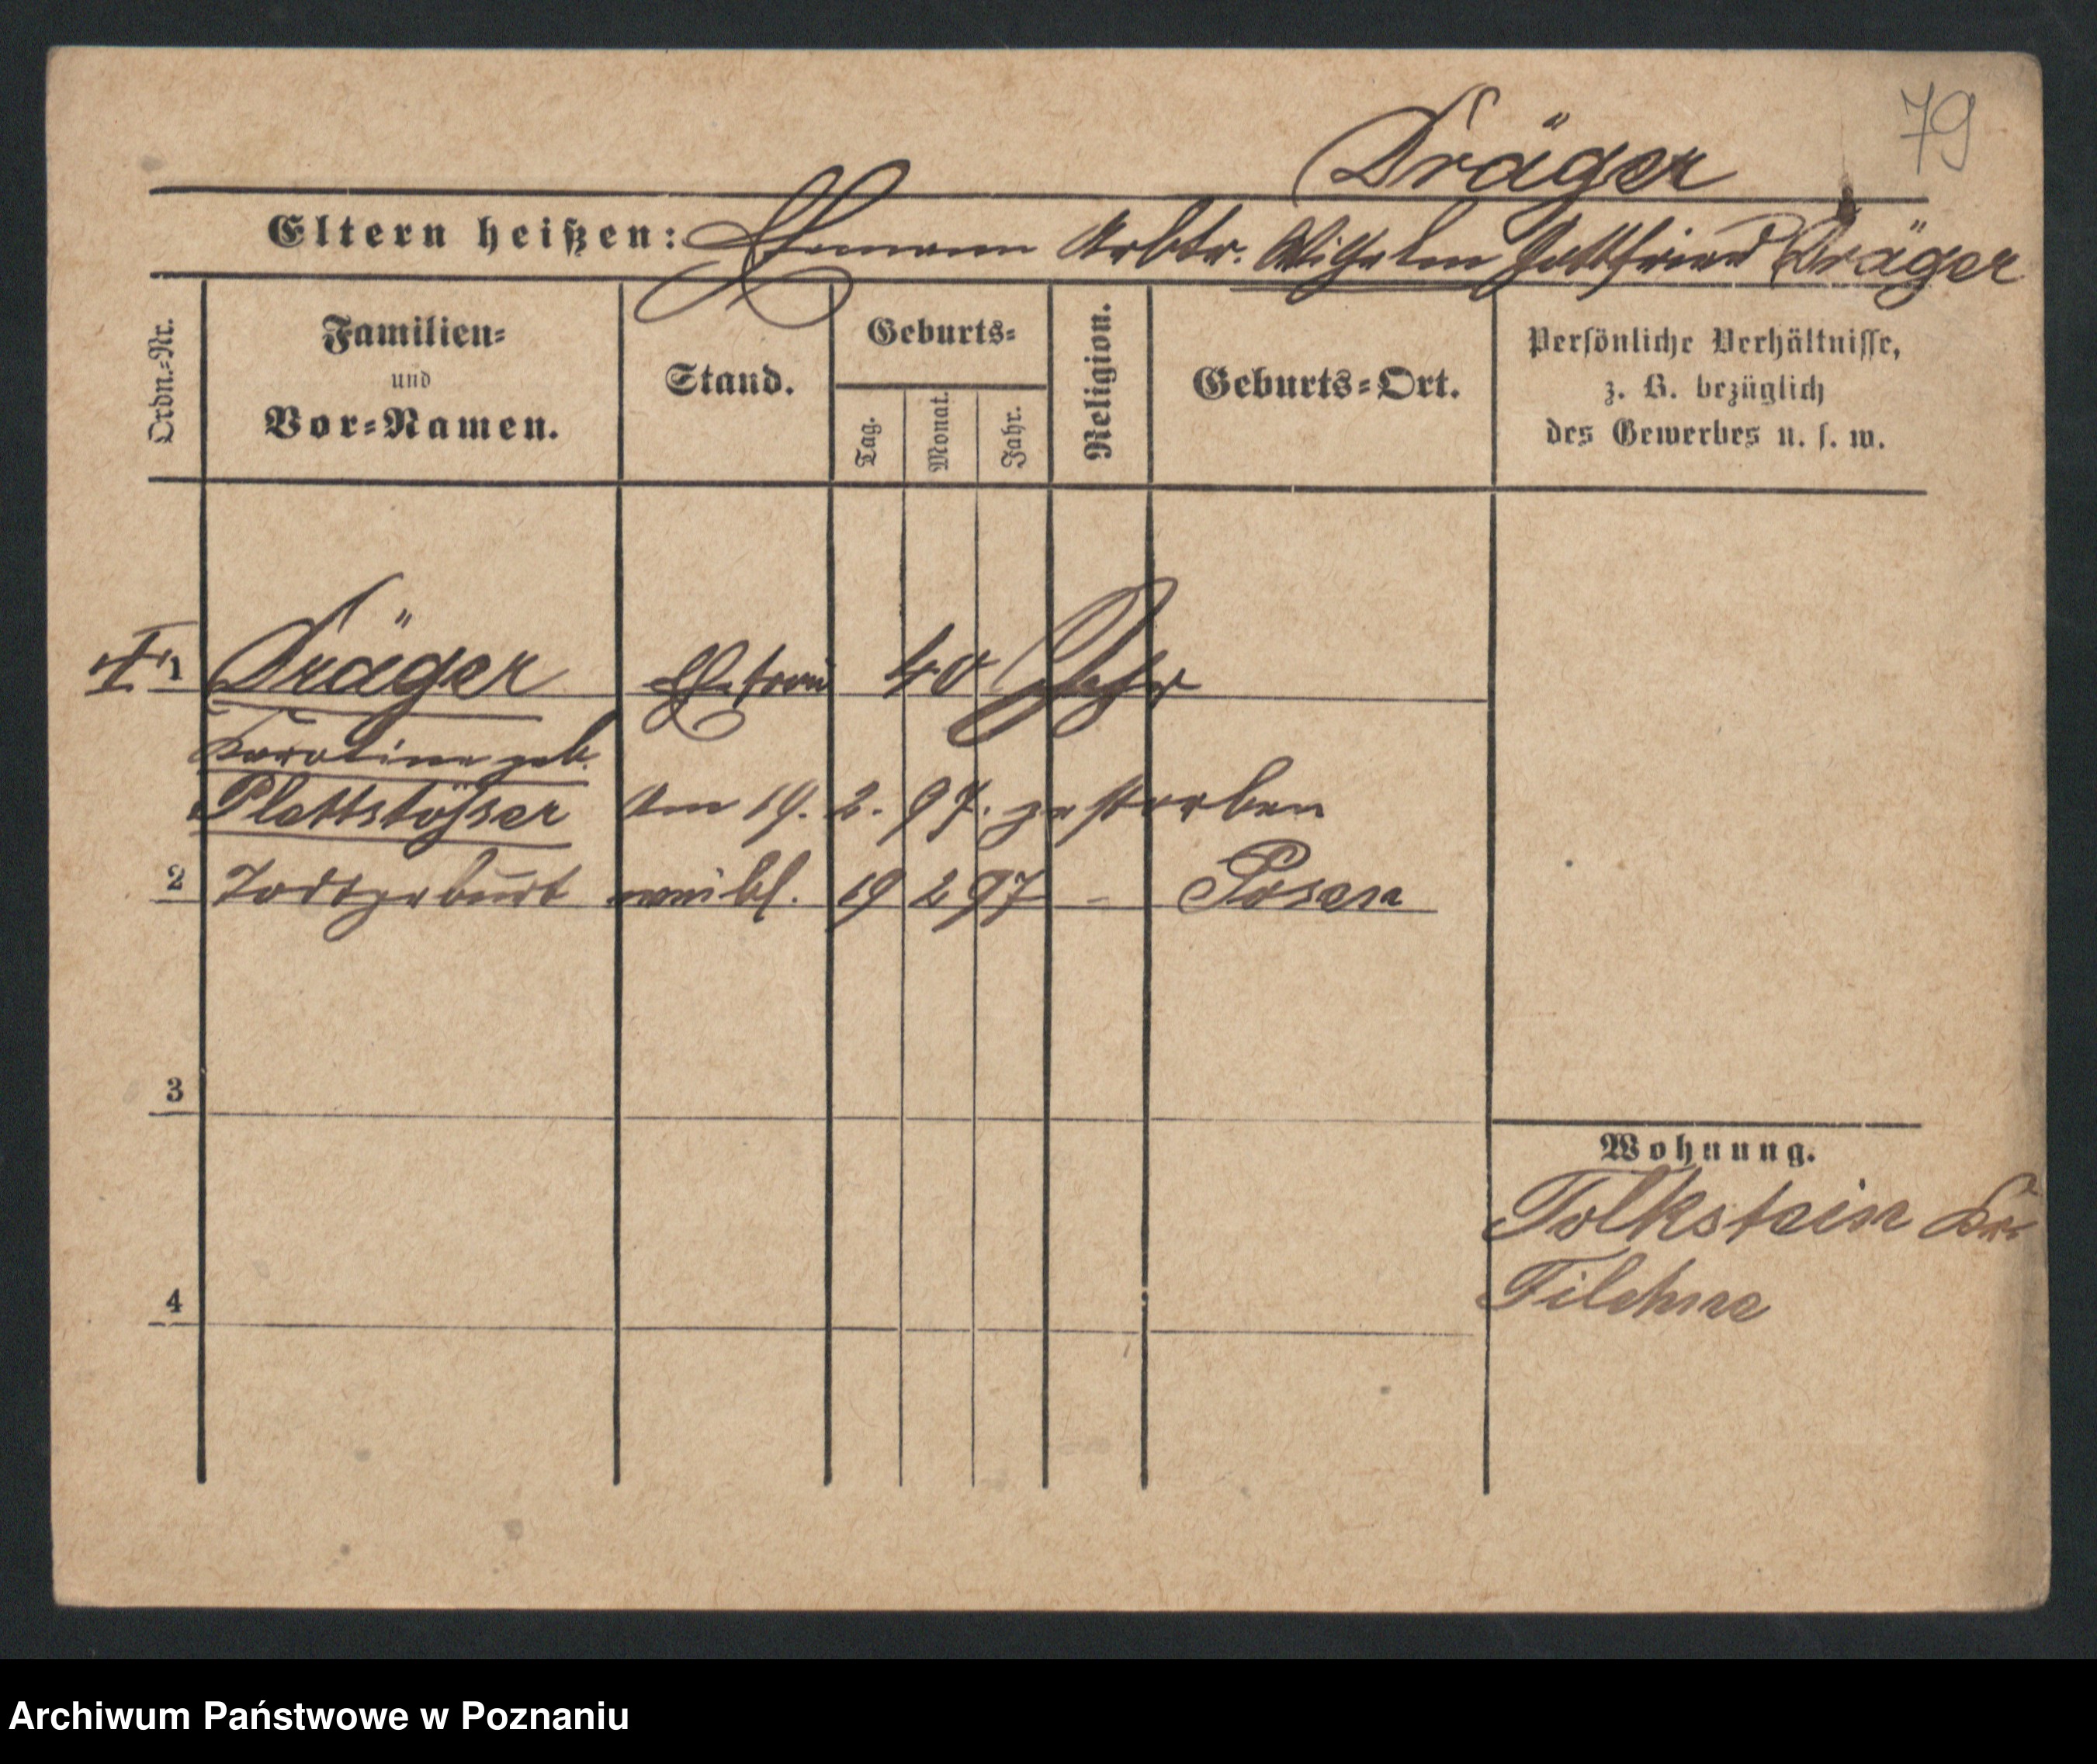 79
Dräger
Eltern heißen: Ehemann Arbtr. Wilhelm Gottfried Dräger
Ordn.-Nr.
Familien-
und
Vor-Namen.
Stand.
Geburts-
Tag.
Monat.
Jahr.
Religion.
Geburts-Ort.
Persönliche Verhältnisse,
z. B. bezüglich
des Gewerbes u. s. w.
I. Dräger Ehefrau 40 Jahr
Karoline geb.
Plettstößer Am 19. 2. 97. gestorben
2 Todtgeburt weibl. 19 2 97 - Posen
3
4
Wohnung.
Folkstein Kr.
Filehne
Archiwum Państwowe w Poznaniu